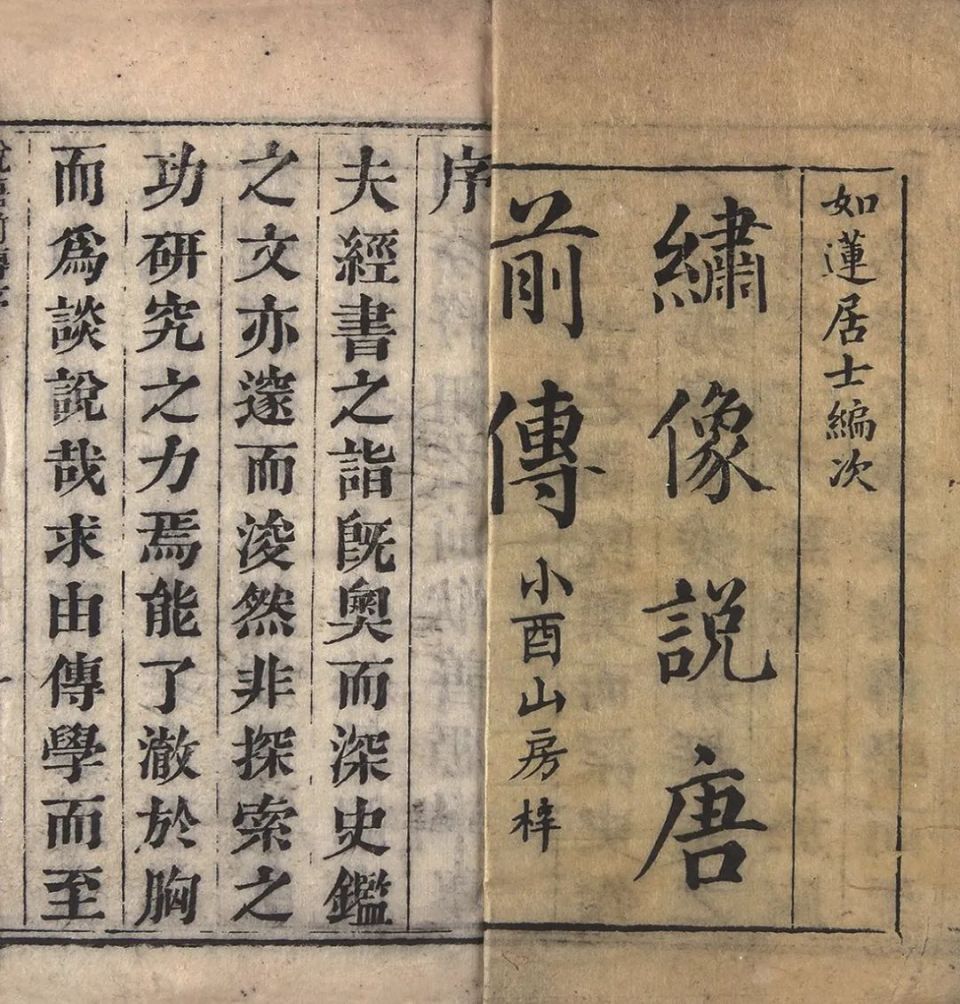 如蓮居士編次
繡像說唐
前傳 小酉山房梓
序
夫經書之詣旣奧而深史鑑
之文亦邃而浚然非探索之
功研究之力焉能了澈於胸
而爲談說哉求由傳學而至